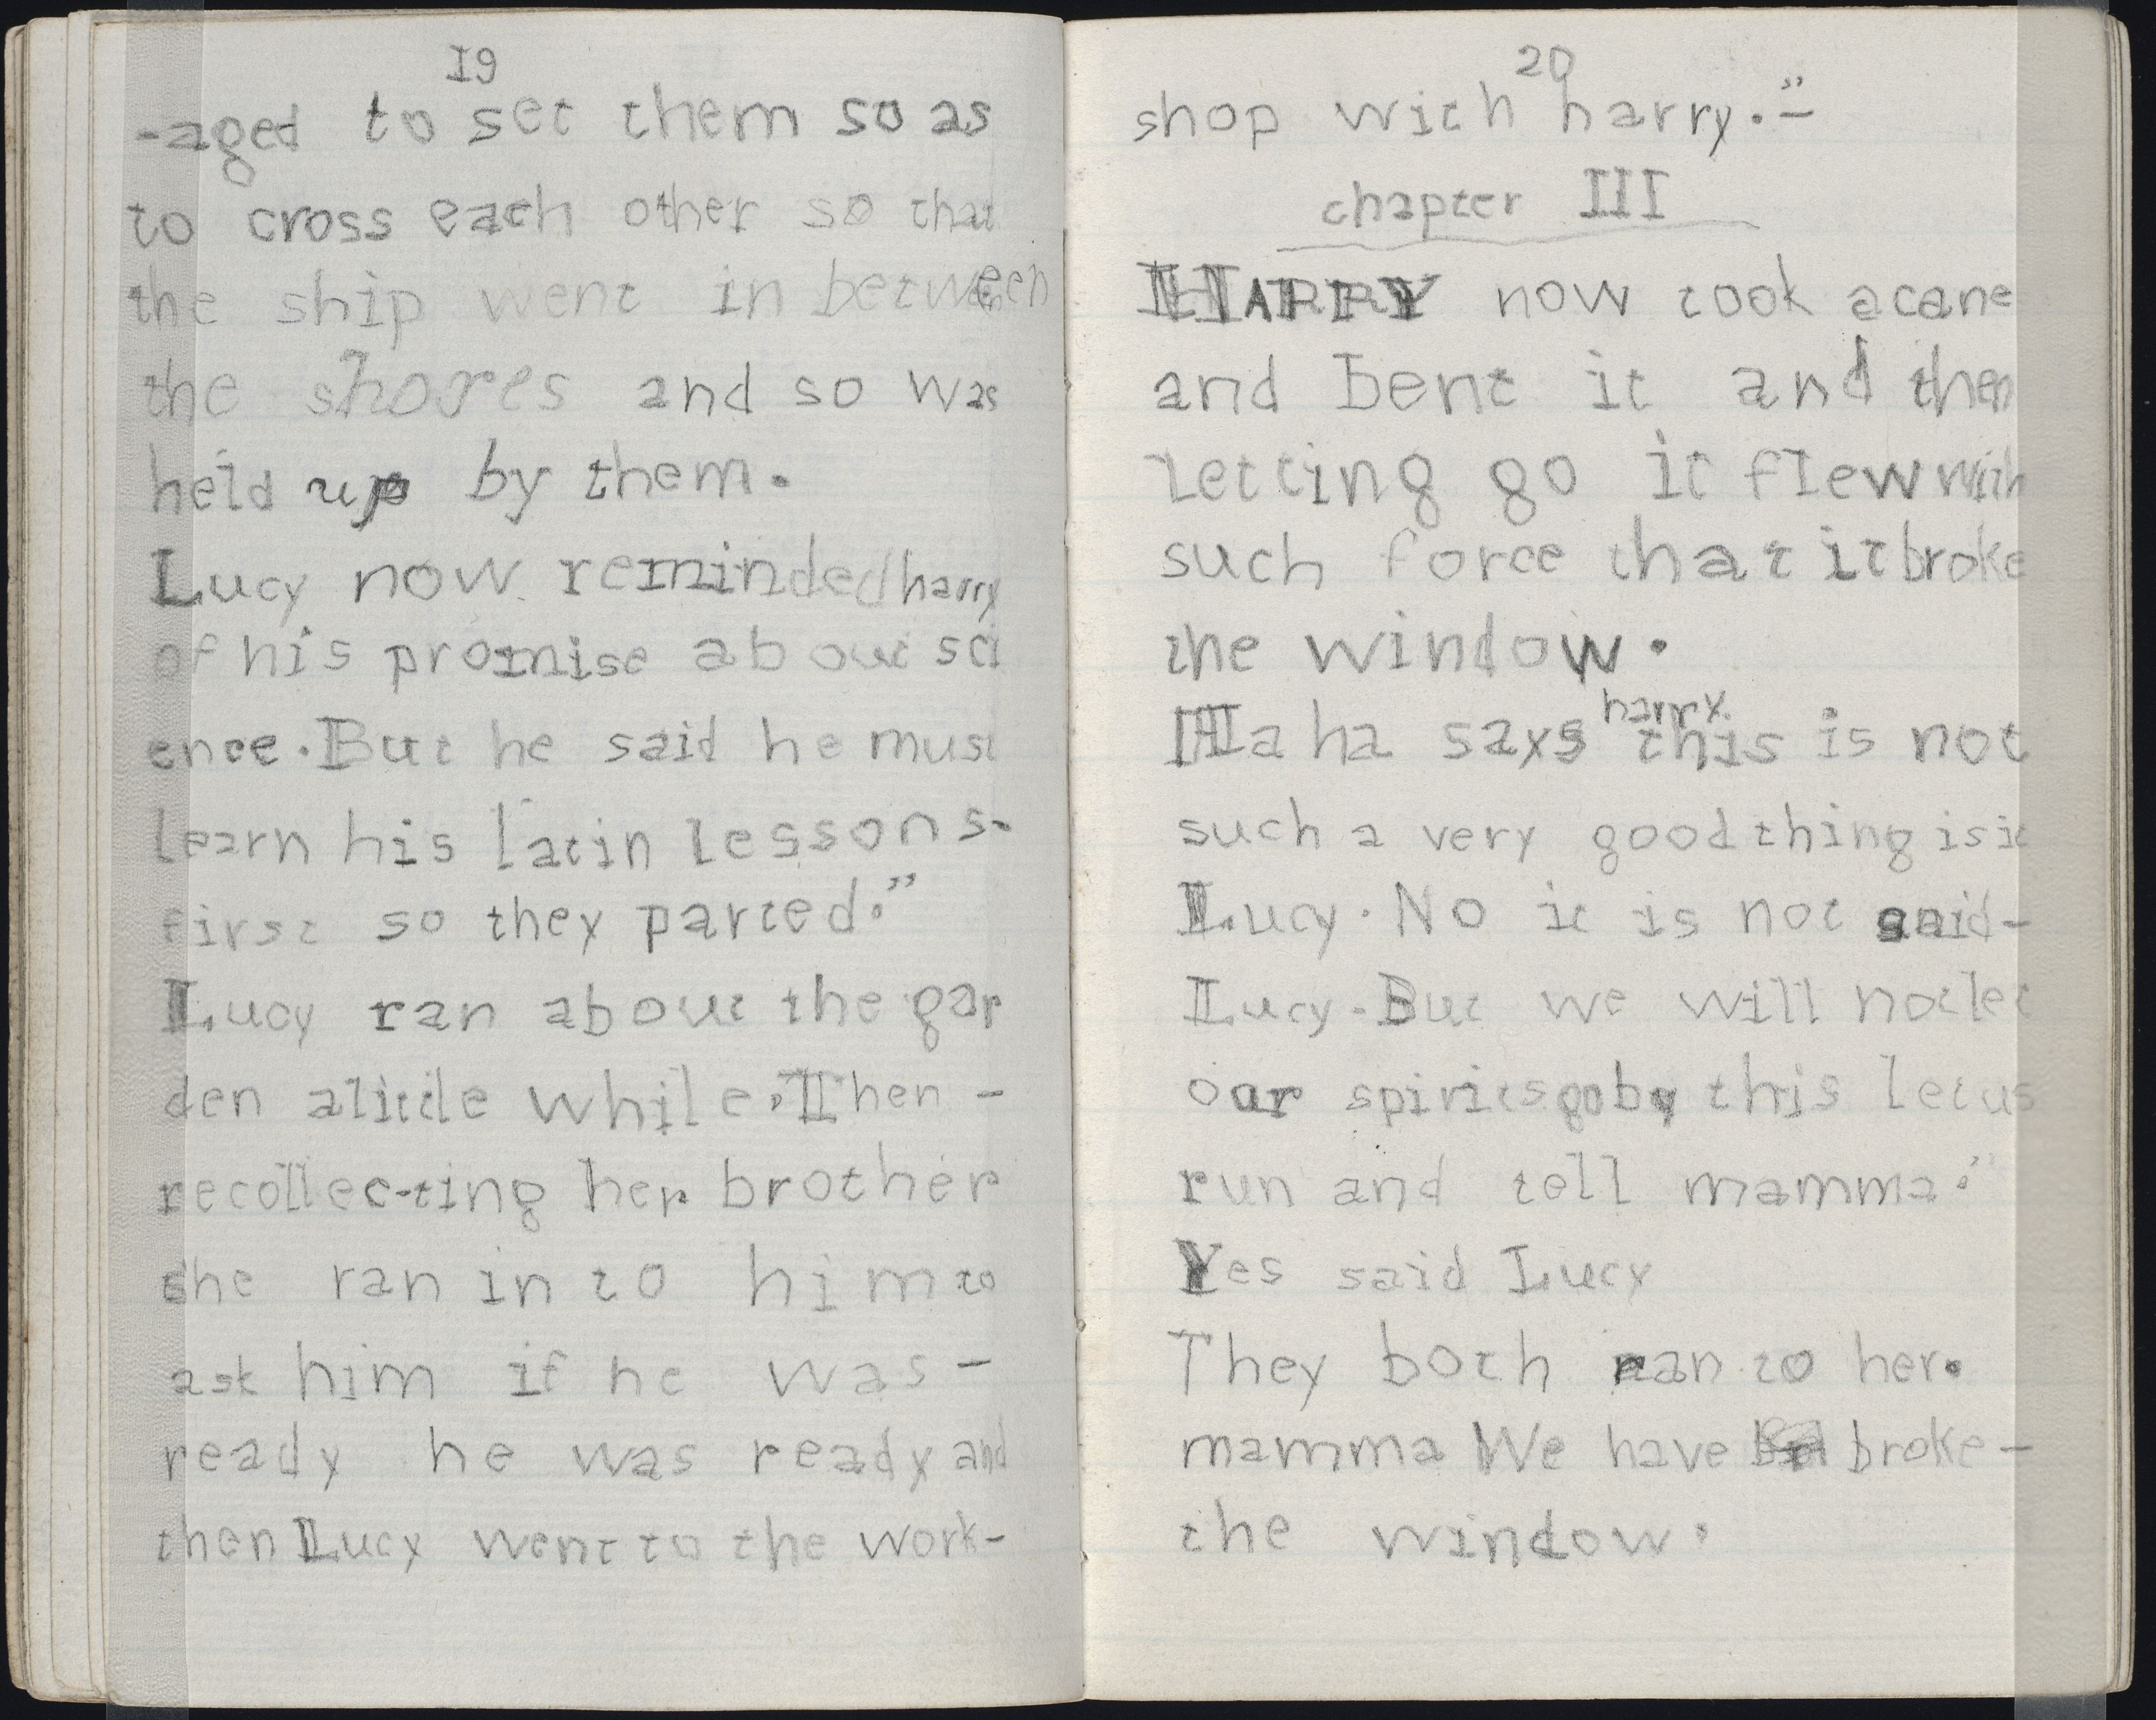 19
-aged to set them so as
to cross each other so that
the ship went in between
the shores and so was
held up by them.
Lucy now reminded harry
of his promise about sci
ence. But he said he must
learn his latin lessons-
first so they parted."
Lucy ran about the gar
den alittle while. Then -
recollec-ting her brother
she ran in to him to
ask him if he was -
ready he was ready and
then Lucy went to the work-
20
shop with harry."-
chapter III
HARRY now took a cane
and bent it and then
letting go it flew with
such force that it broke
the window.
Ha ha says harry this is not
such a very good thing is it
Lucy. No it is not said-
Lucy. But we will not let
our spirits go by this let us
run and tell mamma."
Yes said Lucy
They both ran to her.
mamma We have broke-
the window.